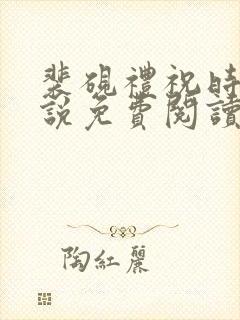 裴硯禮祝時
說免費閱讀
陶紅麗